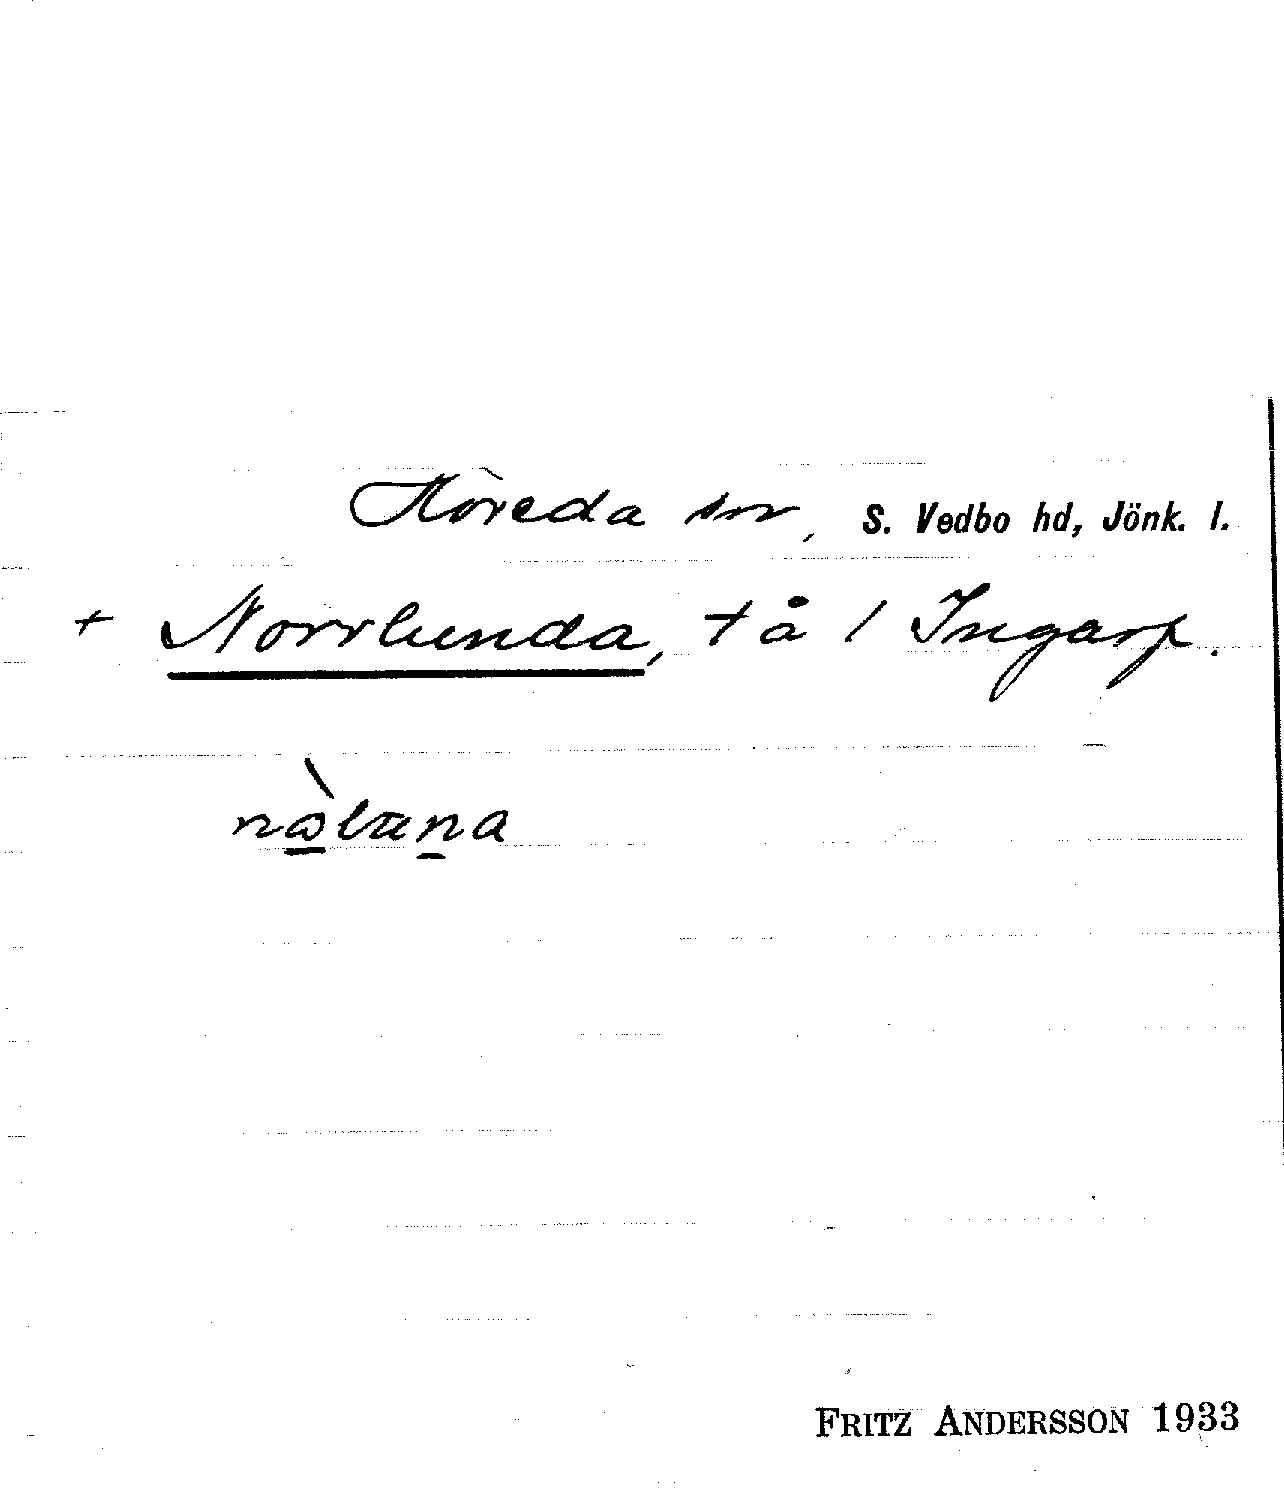 Höreda sn, S. Vedbo hd, Jönk. l.
+ Norrlunda, tå / Ingarp.
FRITZ ANDERSSON 1933